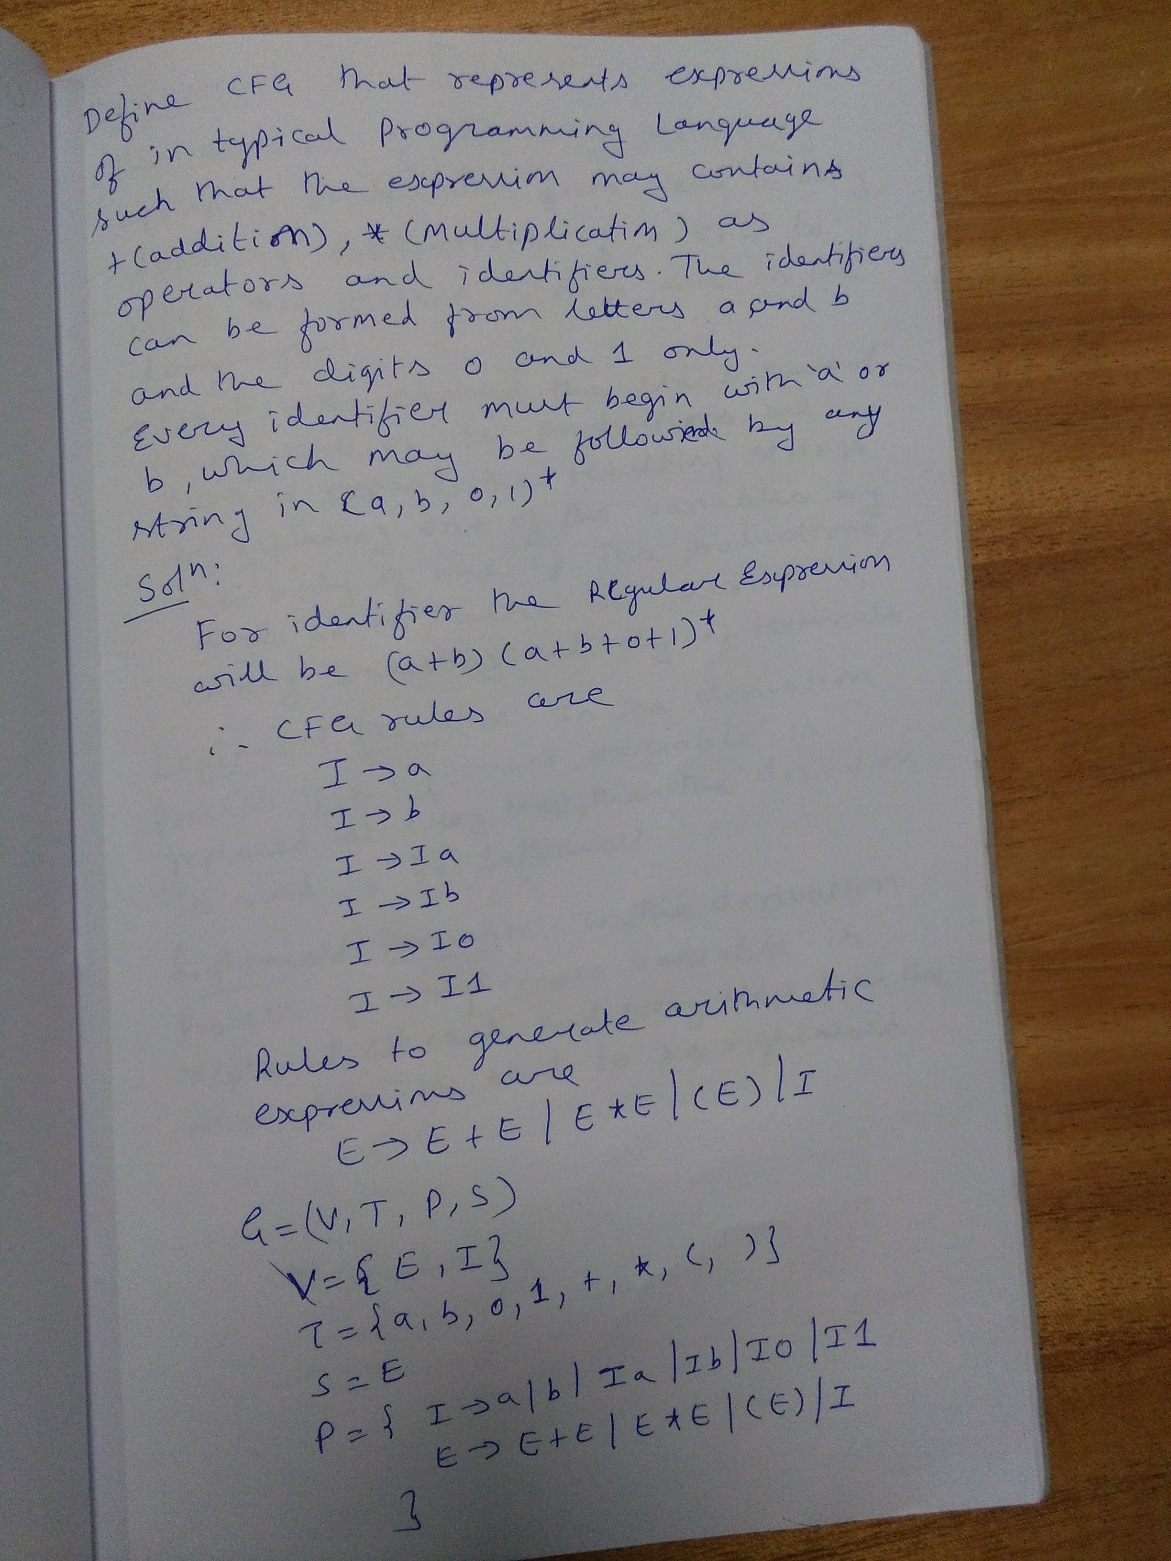 Define CFG that represents expressions
of in typical Programming Language
such that the expression may contains
+(addition), * (Multiplication) as
operators and identifiers. The identifiers
can be formed from letters a and b
and the digits 0 and 1 only.
Every identifier must begin with 'a' or
b, which may be followed by any
string in {a, b, 0, 1)+
Soln:
For identifier the Regular Expression
will be (a+b) (a+b+0+1)+
∴ CFG rules are
I → a
I → b
I → Ia
I → Ib
I → I0
I → I1
Rules to generate arithmetic
expressions are
E → E + E | E * E | (E) | I
G = (V, T, P, S)
V = { E, I }
T = {a, b, 0, 1, +, *, (, )}
S = E
P = { I → a | b | Ia | Ib | I0 | I1
E → E+E | E*E | (E) | I
}